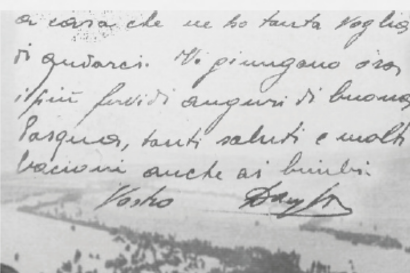 a casa che ne ho tanta voglia
di andarci. Vi giungano ora
i più fervidi auguri di buona
Pasqua, tanti saluti e molti
bacioni anche ai bimbi.
Vostro